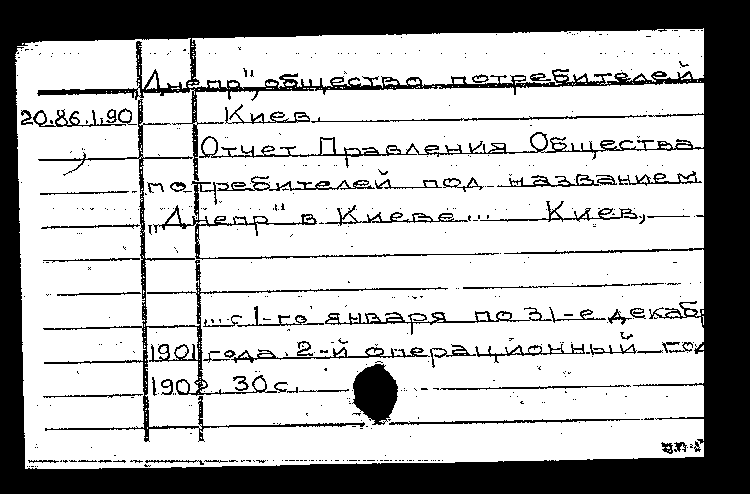 „Днепр", общество потребителей
20.86.1.90 Киев.
Отчет Правления Общества
потребителей под названием
„Днепр" в Киеве... Киев,
...с 1-го января по 31-е декабр
1901 года. 2-й операционный год
1902. 30 с.